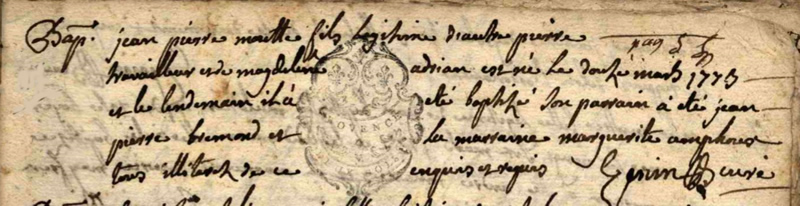 Bap.^t jean pierre moutte fils legitime d'autre pierre
travailleur et de magdeleine adrian est né le douze mars 1773
et le lendemain il à eté baptizé son parrain à eté jean
pierre bremond et la marraine marguerite amphoux
tous illiterés de ce enquis et requis curé